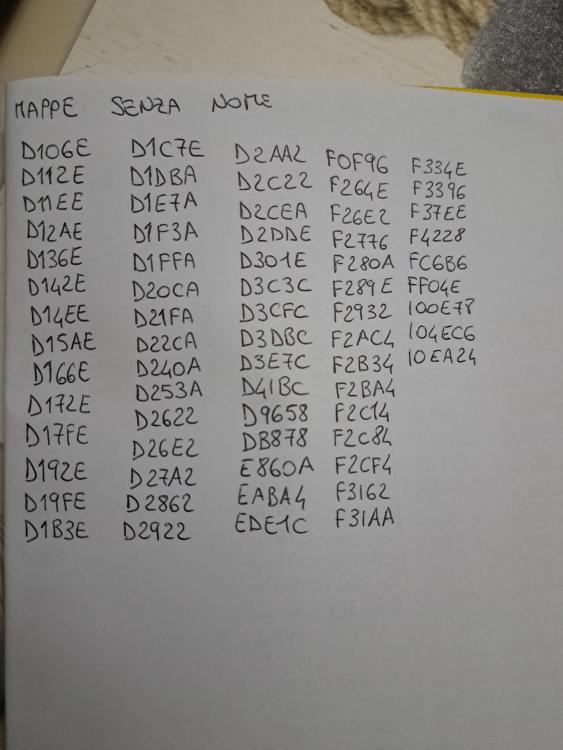 MAPPE SENZA NOME
D106E D1C7E D2AA2 F0F96 F334E
D112E D1DBA D2C22 F264E F3396
D11EE D1E7A D2CEA F26E2 F37EE
D12AE D1F3A D2DDE F2776 F4228
D136E D1FFA D301E F280A FC6B6
D142E D20CA D3C3C F289E FF04E
D14EE D21FA D3CFC F2932 100E78
D15AE D22CA D3DBC F2AC4 104EC6
D166E D240A D3E7C F2B34 10EA24
D172E D253A D41BC F2BA4
D17FE D2622 D9658 F2C14
D192E D26E2 DB878 F2C84
D19FE D27A2 E860A F2CF4
D1B3E D2862 EABA4 F3162
D2922 EDE1C F31AA